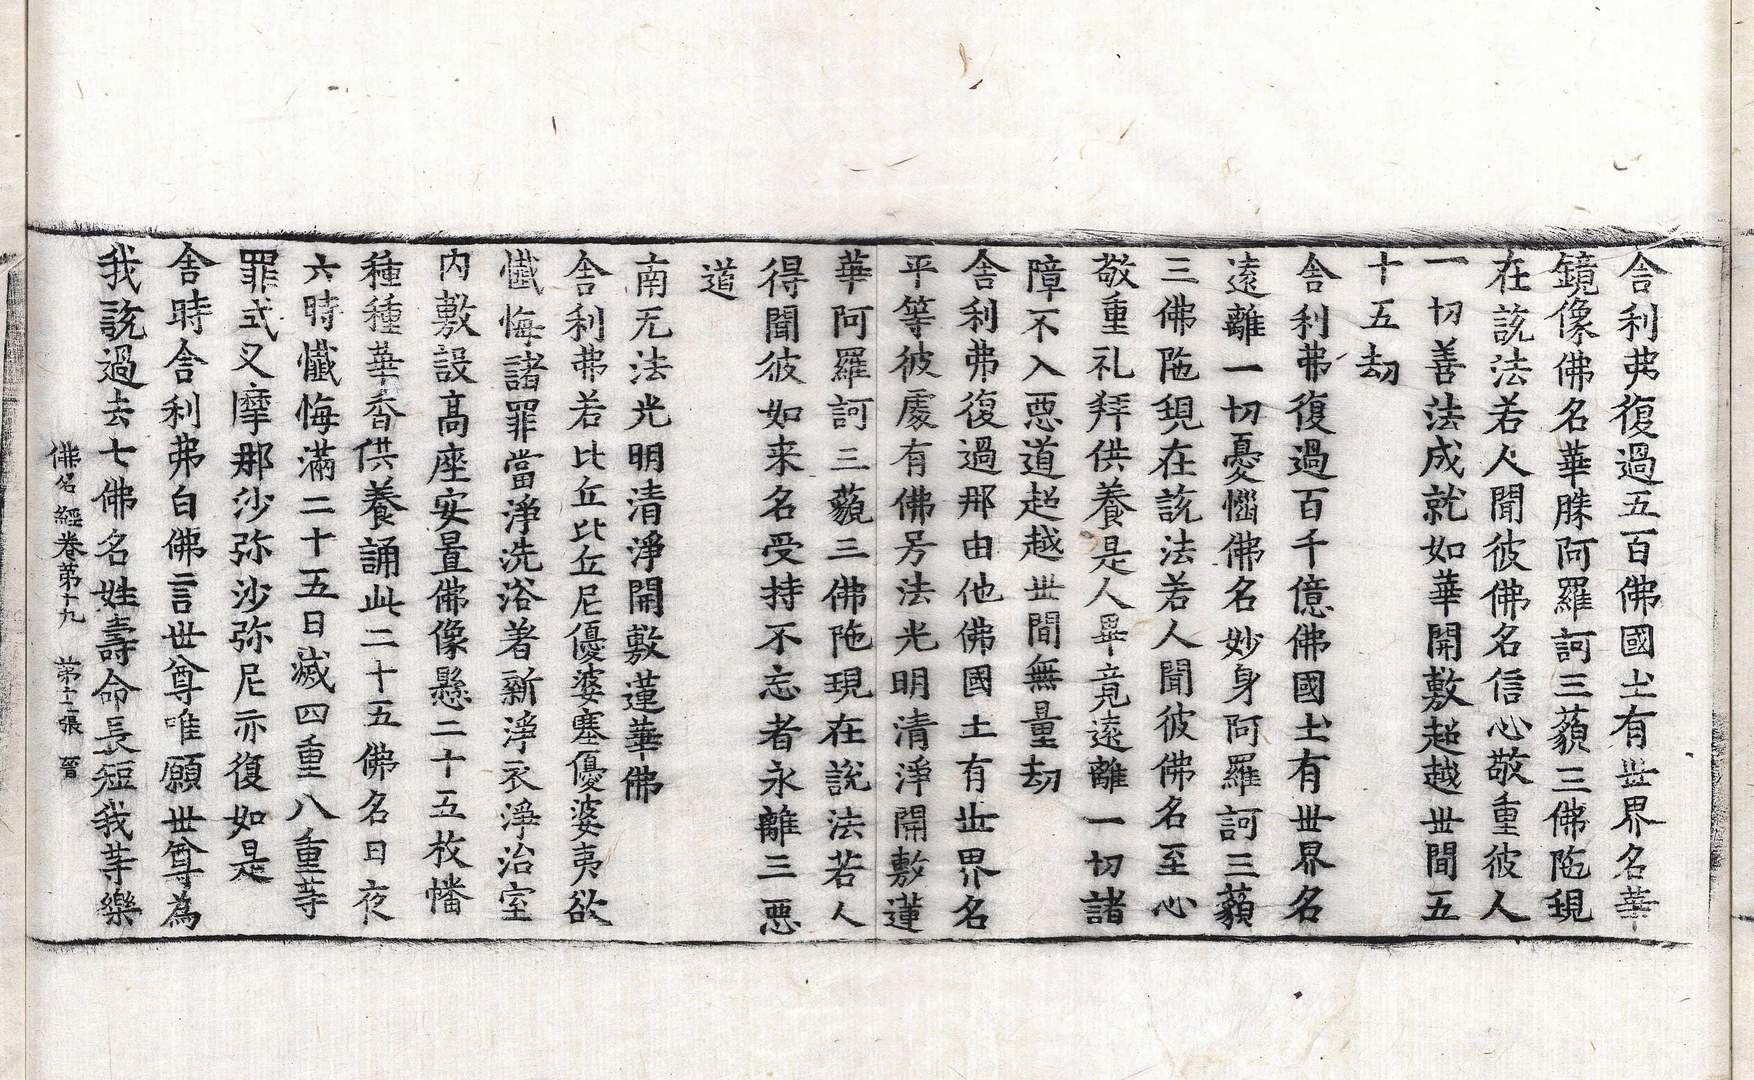 舎利弗復過五百佛國土有世界名華
鏡像佛名華勝阿羅訶三藐三佛陁現
在說法若人聞彼佛名信心敬重彼人
一切善法成就如華開敷超越世間五
十五劫
舎利弗復過百千億佛國土有世界名
遠離一切憂惱佛名妙身阿羅訶三藐
三佛陁現在說法若人聞彼佛名至心
敬重礼拜供養是人畢竟遠離一切諸
障不入惡道超越世間無量劫
舎利弗復過那由他佛國土有世界名
平等彼處有佛号法光明清淨開敷蓮
華阿羅訶三藐三佛陁現在說法若人
得聞彼如来名受持不忘者永離三惡
道
南无法光明清淨開敷蓮華佛
舎利弗若比丘比丘尼優婆塞優婆夷欲
懺悔諸罪當淨洗浴著新淨衣淨治室
内敷設髙座安置佛像懸二十五枚幡
種種華香供養誦此二十五佛名日夜
六時懺悔滿二十五日滅四重八重等
罪式叉摩那沙弥沙弥尼亦復如是
舎時舎利弗白佛言世尊唯願世尊為
我說過去七佛名姓壽命長短我等樂
佛名經卷第十九 第十二張 晉